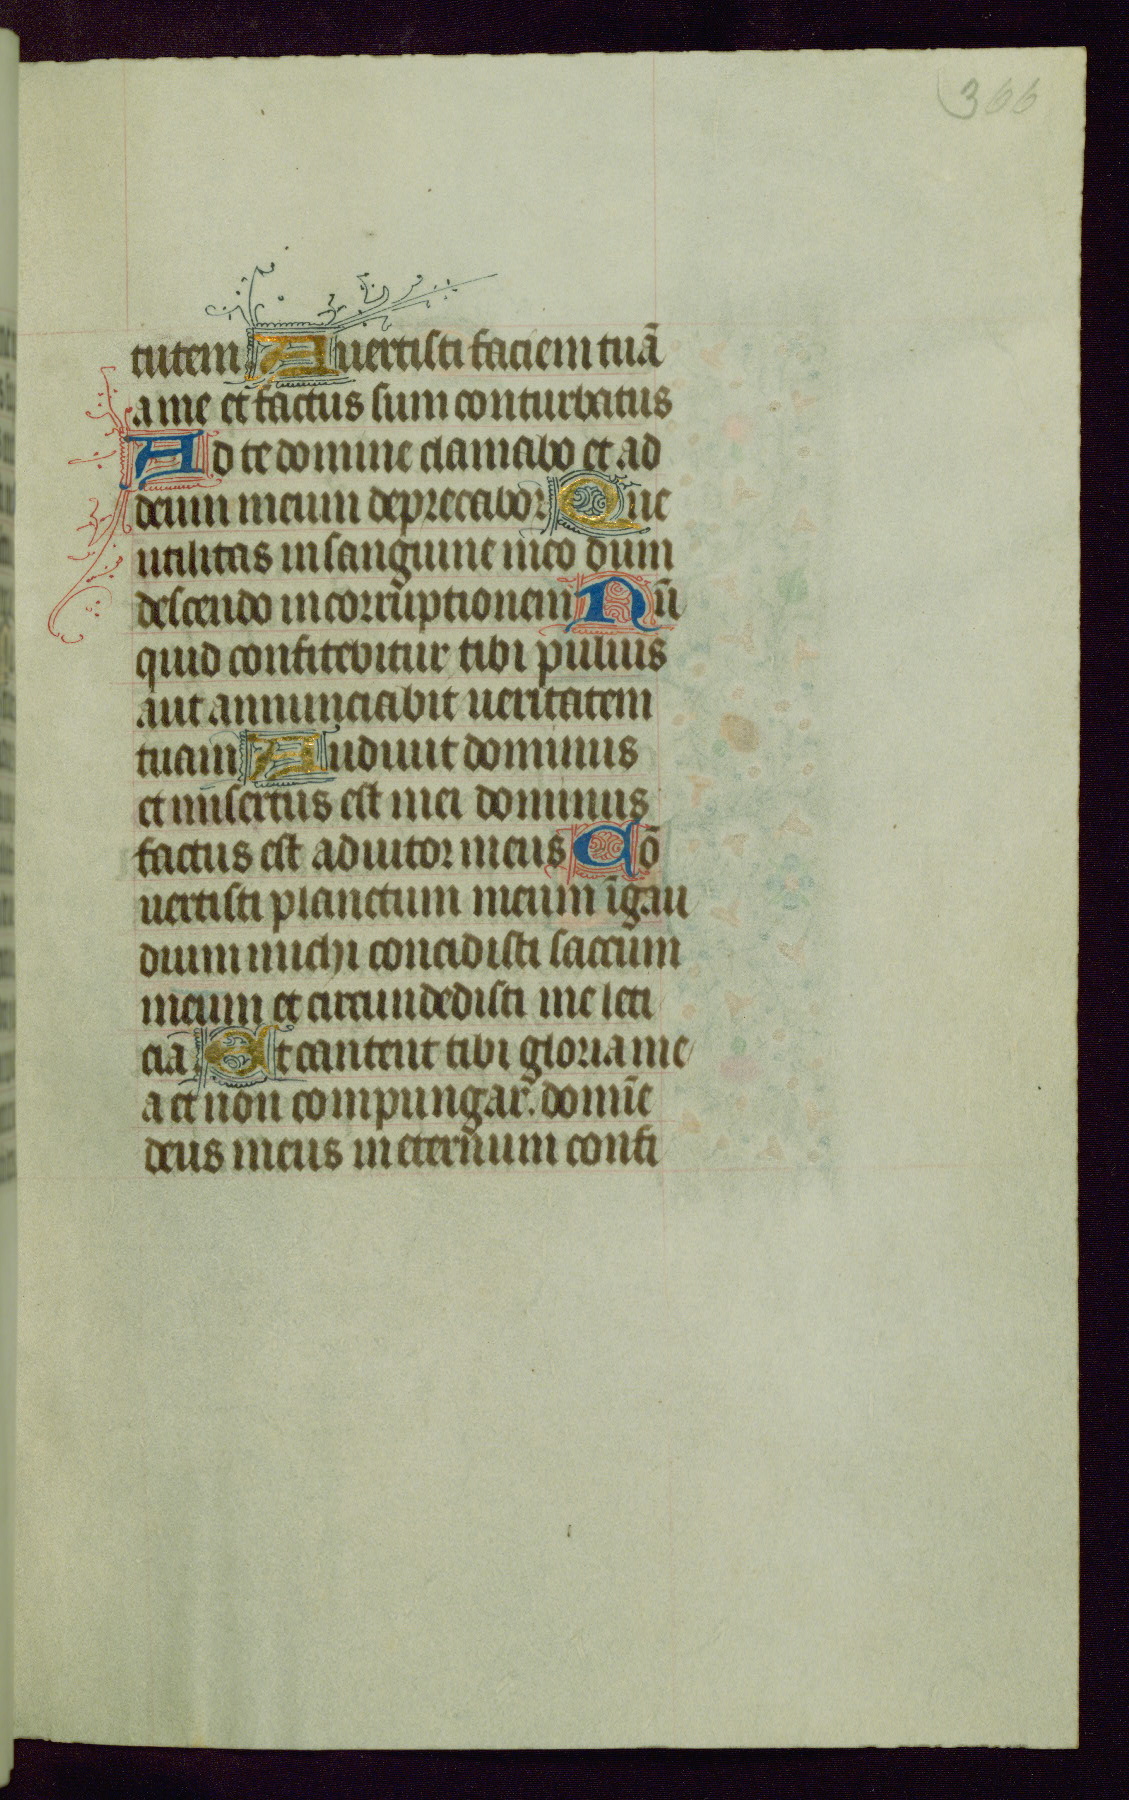 366
tutem Auertisti faciem tuā
a me et factus sum conturbatus
Ad te domine clamabo et ad
deum meum deprecabor Que
utilitas in sanguine meo dum
descendo in corruptionem Nū
quid confitebitur tibi puluis
aut annunciabit ueritatem
tuam Audiuit dominus
et misertus est mei dominus
factus est adiutor meus Cō
uertisti planctum meum ī gau
dium michi concidisti saccum
meum et circundedisti me leti
cia Et cantent tibi gloria me
a et non compungar. domīe
deus meus in eternum confi